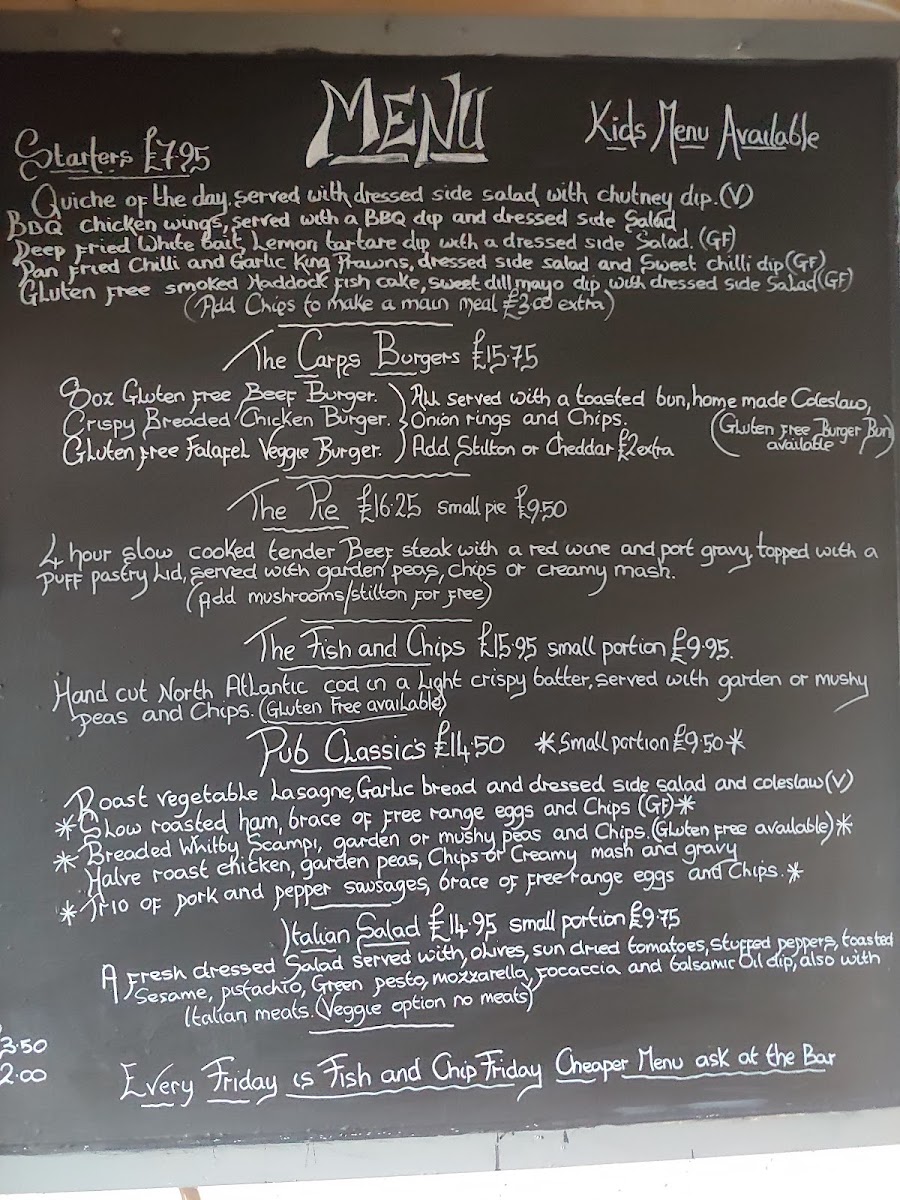 MENU
Kids Menu Available
Starters £7.95
Quiche of the day, served with dressed side salad with chutney dip. (V)
BBQ chicken wings, served with a BBQ dip and dressed side Salad
Deep fried White bait, Lemon tartare dip with a dressed side Salad. (GF)
Pan Fried Chilli and Garlic King Prawns, dressed side salad and Sweet chilli dip (GF)
Gluten Free smoked Haddock fish cake, sweet dill mayo dip with dressed side Salad (GF)
(Add Chips to make a main meal £3.00 extra)
The Carps Burgers £15.75
8oz Gluten Free Beef Burger. ) All served with a toasted bun, home made Coleslaw,
Crispy Breaded Chicken Burger. } Onion rings and Chips. (Gluten Free Burger Bun
Gluten Free Falafel Veggie Burger. ) Add Stilton or Cheddar £2 extra available)
The Pie £16.25 small pie £9.50
4 hour slow cooked tender Beef steak with a red wine and port gravy, topped with a
puff pastry Lid, served with garden peas, chips or creamy mash.
(Add mushrooms/stilton for free)
The Fish and Chips £15.95 small portion £9.95.
Hand cut North Atlantic cod in a Light crispy batter, served with garden or mushy
peas and Chips. (Gluten Free available)
Pub Classic's £14.50 *Small portion £9.50*
Roast vegetable Lasagne, Garlic bread and dressed side salad and coleslaw (V)
*Slow roasted ham, brace of free range eggs and Chips (GF)*
*Breaded Whitby Scampi, garden or mushy peas and Chips. (Gluten Free available)*
Halve roast chicken, garden peas, Chips or Creamy mash and gravy
*Trio of pork and pepper sausages, brace of free range eggs and Chips.*
Italian Salad £14.95 small portion £9.75
A fresh dressed Salad served with, olives, sun dried tomatoes, stuffed peppers, toasted
Sesame, pistachio, Green pesto, mozzarella, focaccia and balsamic Oil dip, also with
Italian meats. (Veggie option no meats)
3.50
2.00
Every Friday is Fish and Chip Friday Cheaper Menu ask at the Bar